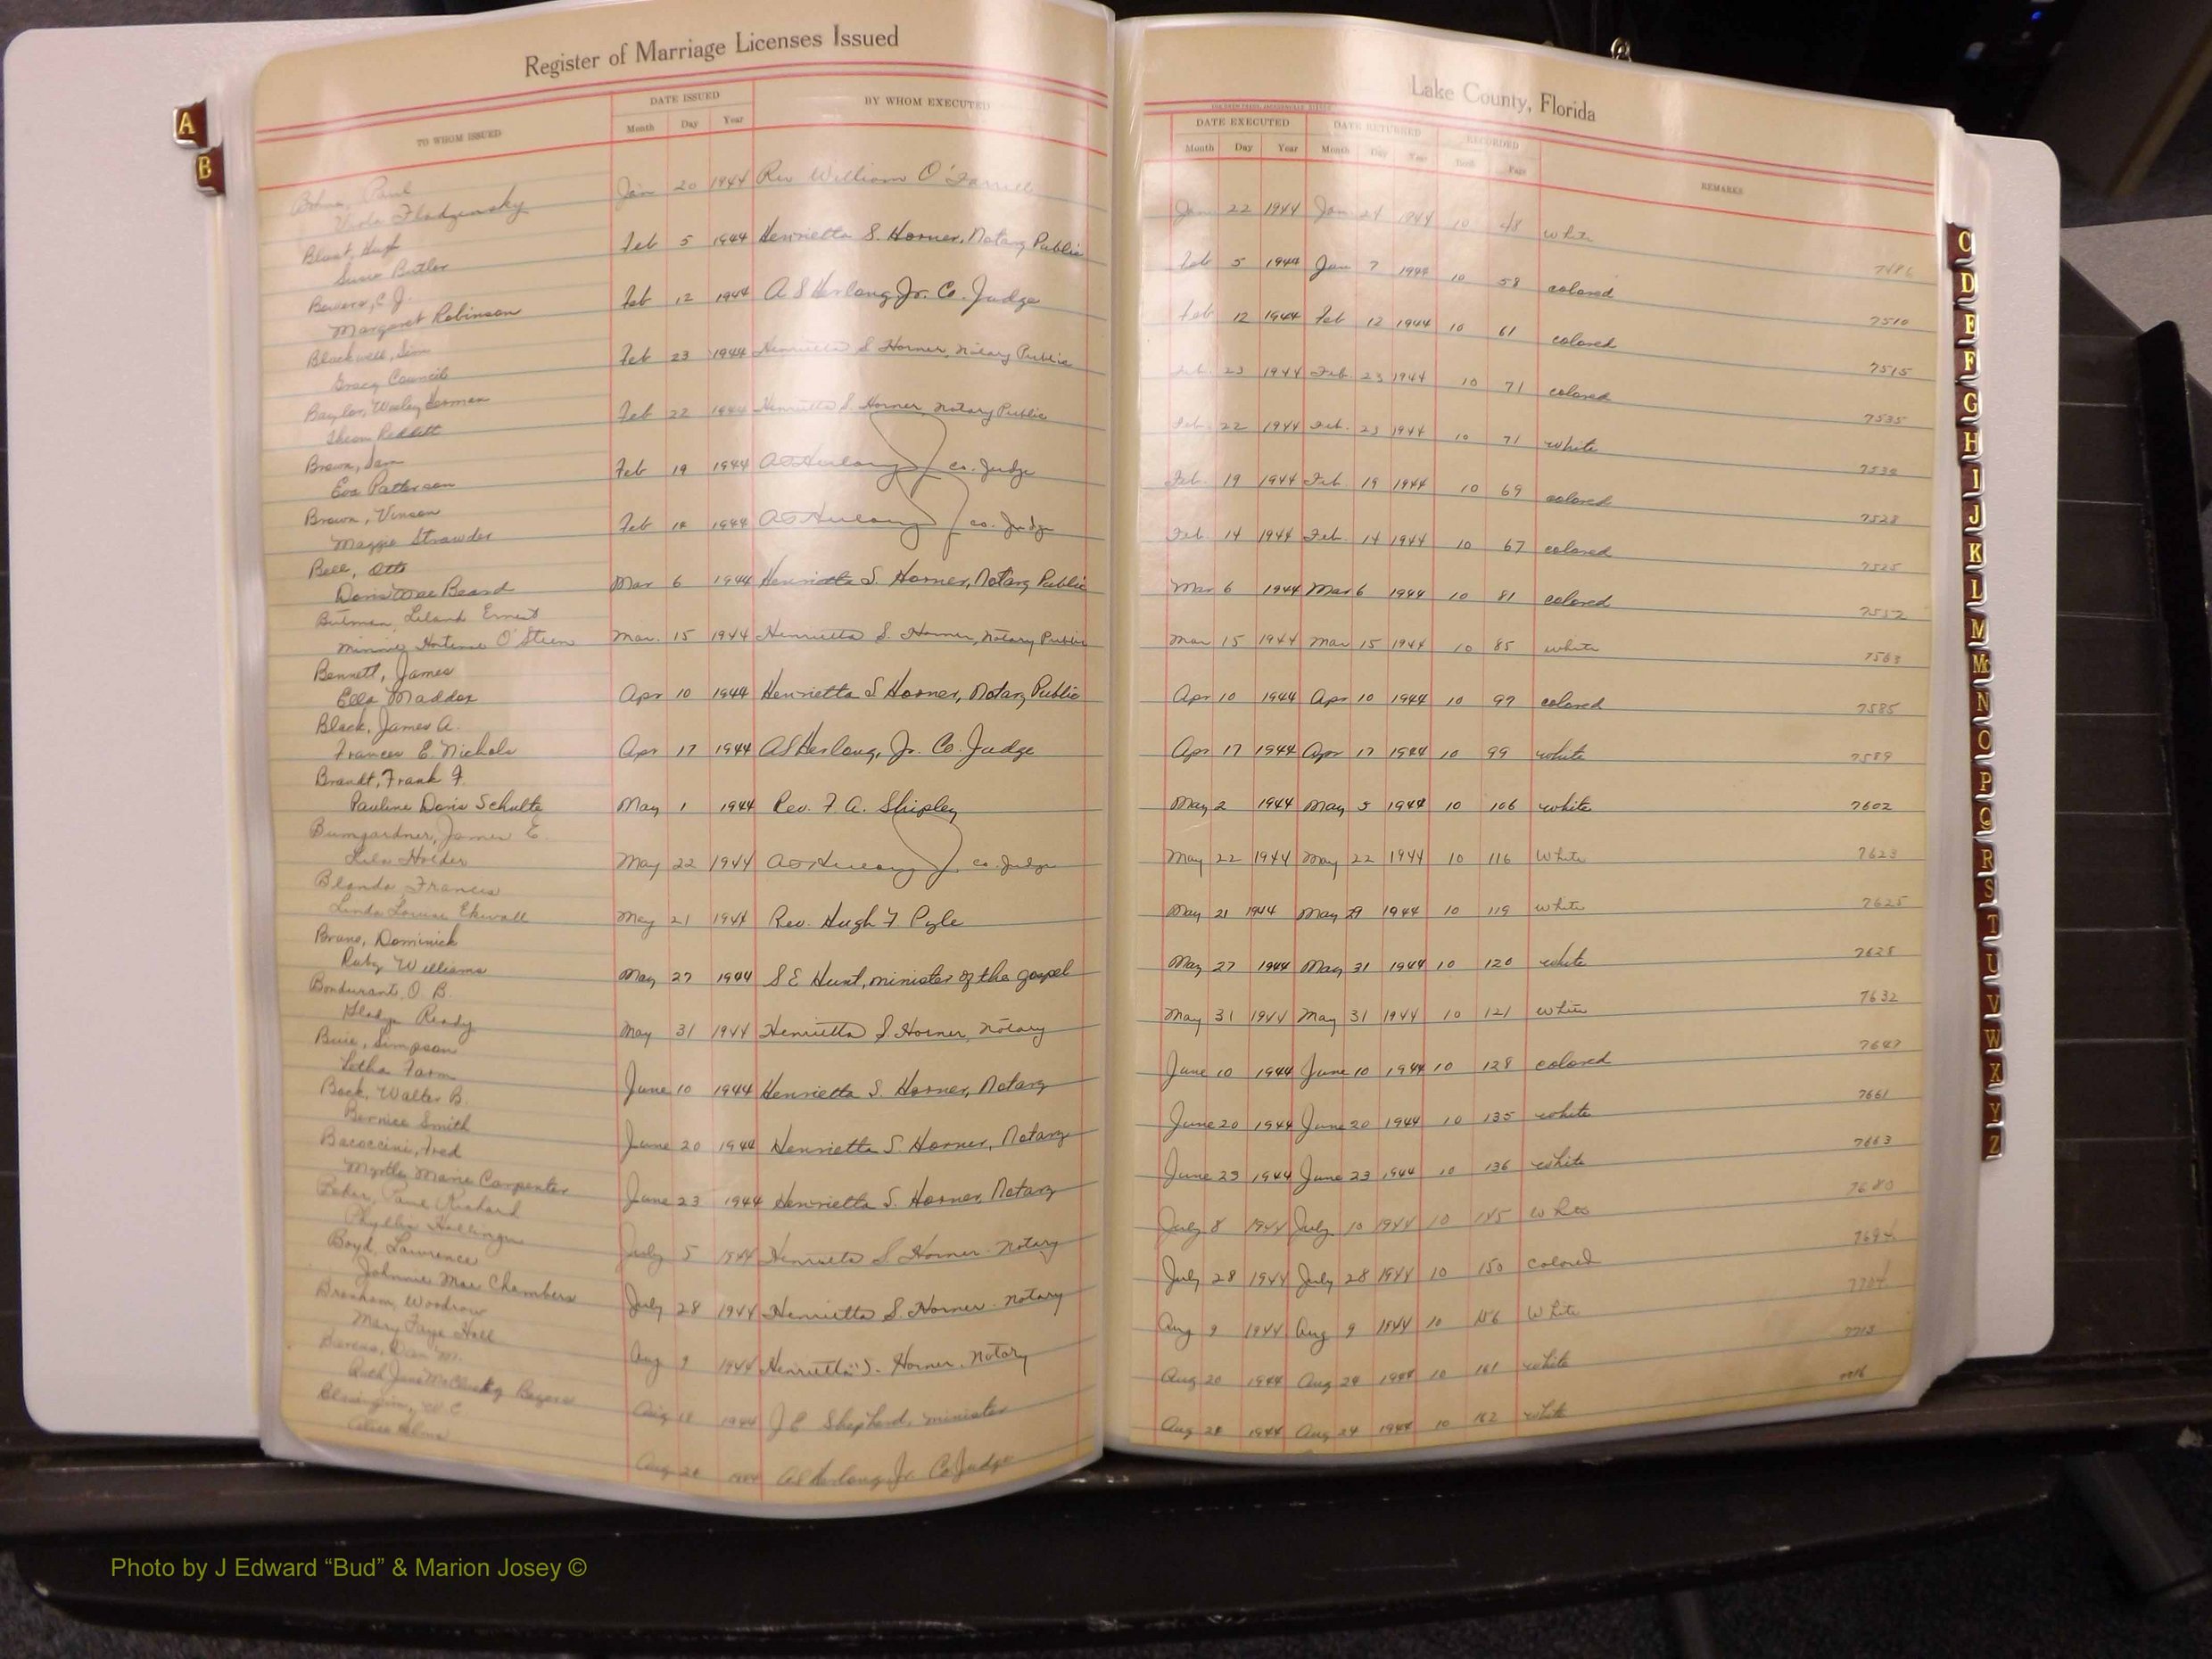 Register of Marriage Licenses Issued
Lake County, Florida
TO WHOM ISSUED
DATE ISSUED
Month Day Year
BY WHOM EXECUTED
DATE EXECUTED
Month Day Year
DATE RETURNED
Month Day Year
RECORDED
Book Page
REMARKS
A
B
Paul
Jan 20 1944 Rev William O'Farrell Jan 22 1944 Jan 24 1944 10 48 white 7486
Butler
Feb 5 1944 Henrietta S. Horner, Notary Public Feb 5 1944 Jan 7 1944 10 58 colored 7510
Bowers, C. J.
Margaret Robinson
Feb 12 1944 A S Herlong Jr. Co. Judge Feb 12 1944 Feb 12 1944 10 61 colored 7515
Blackwell, Sim
Gracy Council
Feb 23 1944 Henrietta S Horner, Notary Public Feb. 23 1944 Feb 23 1944 10 71 colored 7535
Baylor, Wesley Herman
Redditt
Feb 22 1944 Henrietta S. Horner, Notary Public Feb. 22 1944 Feb. 23 1944 10 71 white
Brown, Sam
Eva Patterson
Feb 19 1944 A S Herlong Jr co. Judge Feb. 19 1944 Feb. 19 1944 10 69 colored 7528
Brown, Vinson
Maggie Strawder
Feb 14 1944 A S Herlong Jr co. Judge Feb. 14 1944 Feb. 14 1944 10 67 colored 7525
Bell, Otto
Doris Mae Beard
Mar 6 1944 Henrietta S. Horner, Notary Public Mar 6 1944 Mar 6 1944 10 81 colored 7552
Leland Ernest
Hortense O'Steen
Mar. 15 1944 Henrietta S. Horner, Notary Public Mar 15 1944 Mar 15 1944 10 85 white 7563
Bennett, James
Ella Maddox
Apr 10 1944 Henrietta S Horner, Notary Public Apr 10 1944 Apr 10 1944 10 97 colored 7585
Black, James A.
Frances E. Nichols
Apr 17 1944 A S Herlong, Jr. Co. Judge Apr 17 1944 Apr 17 1944 10 99 white 7589
Brandt, Frank F.
Pauline Doris Schulte
May 1 1944 Rev. F. A. Shipley May 2 1944 May 5 1944 10 106 white 7602
Bumgardner, James E.
Lula Holder
May 22 1944 A S Herlong Jr co. Judge May 22 1944 May 22 1944 10 116 White 7623
Blanda Francis
Linda Louise Ekwall
May 21 1944 Rev. Hugh F. Pyle May 21 1944 May 29 1944 10 119 white 7625
Brune, Dominick
Ruby Williams
May 27 1944 S E Hunt, minister of the gospel May 27 1944 May 31 1944 10 120 white 7628
Bondurant, O. B.
Gladys Ready
May 31 1944 Henrietta S. Horner, Notary May 31 1944 May 31 1944 10 121 white 7632
Buie, Simpson
Letha Farm
June 10 1944 Henrietta S. Horner, Notary June 10 1944 June 10 1944 10 128 colored 7647
Bock, Walter B.
Bernice Smith
June 20 1944 Henrietta S. Horner, Notary June 20 1944 June 20 1944 10 135 white 7661
Bacoccini, Fred
Myrtle Marie Carpenter
June 23 1944 Henrietta S. Horner, Notary June 23 1944 June 23 1944 10 136 white 7663
Baker, Paul Richard
Phyllis Hollinger
July 5 1944 Henrietta S. Horner. Notary July 8 1944 July 10 1944 10 145 white 7680
Boyd, Lawrence
Johnnie Mae Chambers
July 28 1944 Henrietta S. Horner. Notary July 28 1944 July 28 1944 10 150 colored 7694
Branham, Woodrow
Mary Faye Hall
Aug 9 1944 Henrietta S. Horner. Notary Aug 9 1944 Aug 9 1944 10 156 White 7704
Ruth Jane McCluskey
Aug 18 1944 J E Shepherd, minister Aug 20 1944 Aug 24 1944 10 161 white 7713
Aug 1944 A S Herlong, Jr. Co Judge Aug 1944 Aug 24 1944 10 162 white
C
D
E
F
G
H
I
J
K
L
M
Mc
N
O
P
Q
R
S
T
U
V
W
X
Y
Z
Photo by J Edward “Bud” & Marion Josey ©